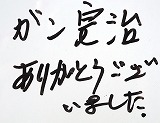 ガン完治
ありがとうござ
いました.